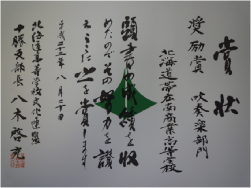 賞状
奨励賞 吹奏楽部門
北海道帯広南商業高等学校
顕書の成績を収
めたのでその努力を讃
えここに之を賞します
平成二十五年八月二十日
北海道高等学校文化連盟
十勝支部長 八木啓充